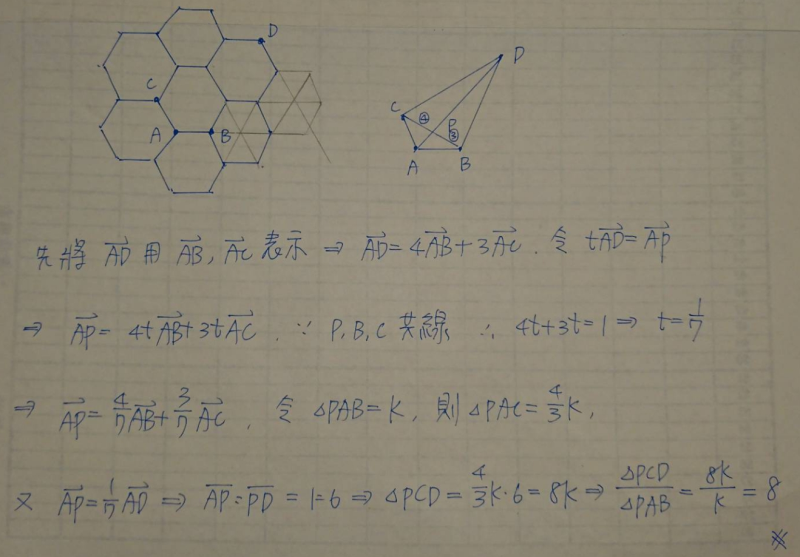 D
C
A B
D
C ④ P ③
A B
先將 $\overrightarrow{AD}$ 用 $\overrightarrow{AB}$, $\overrightarrow{AC}$ 表示 ⇒ $\overrightarrow{AD}$=4$\overrightarrow{AB}$+3$\overrightarrow{AC}$. 令 t$\overrightarrow{AD}$=$\overrightarrow{AP}$
⇒ $\overrightarrow{AP}$= 4t$\overrightarrow{AB}$+3t$\overrightarrow{AC}$. ∵ P, B, C 共線 ∴ 4t+3t=1 ⇒ t=$\frac{1}{7}$
⇒ $\overrightarrow{AP}$=$\frac{4}{7}\overrightarrow{AB}$+$\frac{3}{7}\overrightarrow{AC}$. 令 △PAB=K, 則 △PAC=$\frac{4}{3}$K,
又 $\overrightarrow{AP}$=$\frac{1}{7}\overrightarrow{AD}$ ⇒ $\overrightarrow{AP}$:$\overrightarrow{PD}$ = 1:6 ⇒ △PCD=$\frac{4}{3}$K·6=8K ⇒ $\frac{△PCD}{△PAB}$=$\frac{8K}{K}$=8
※